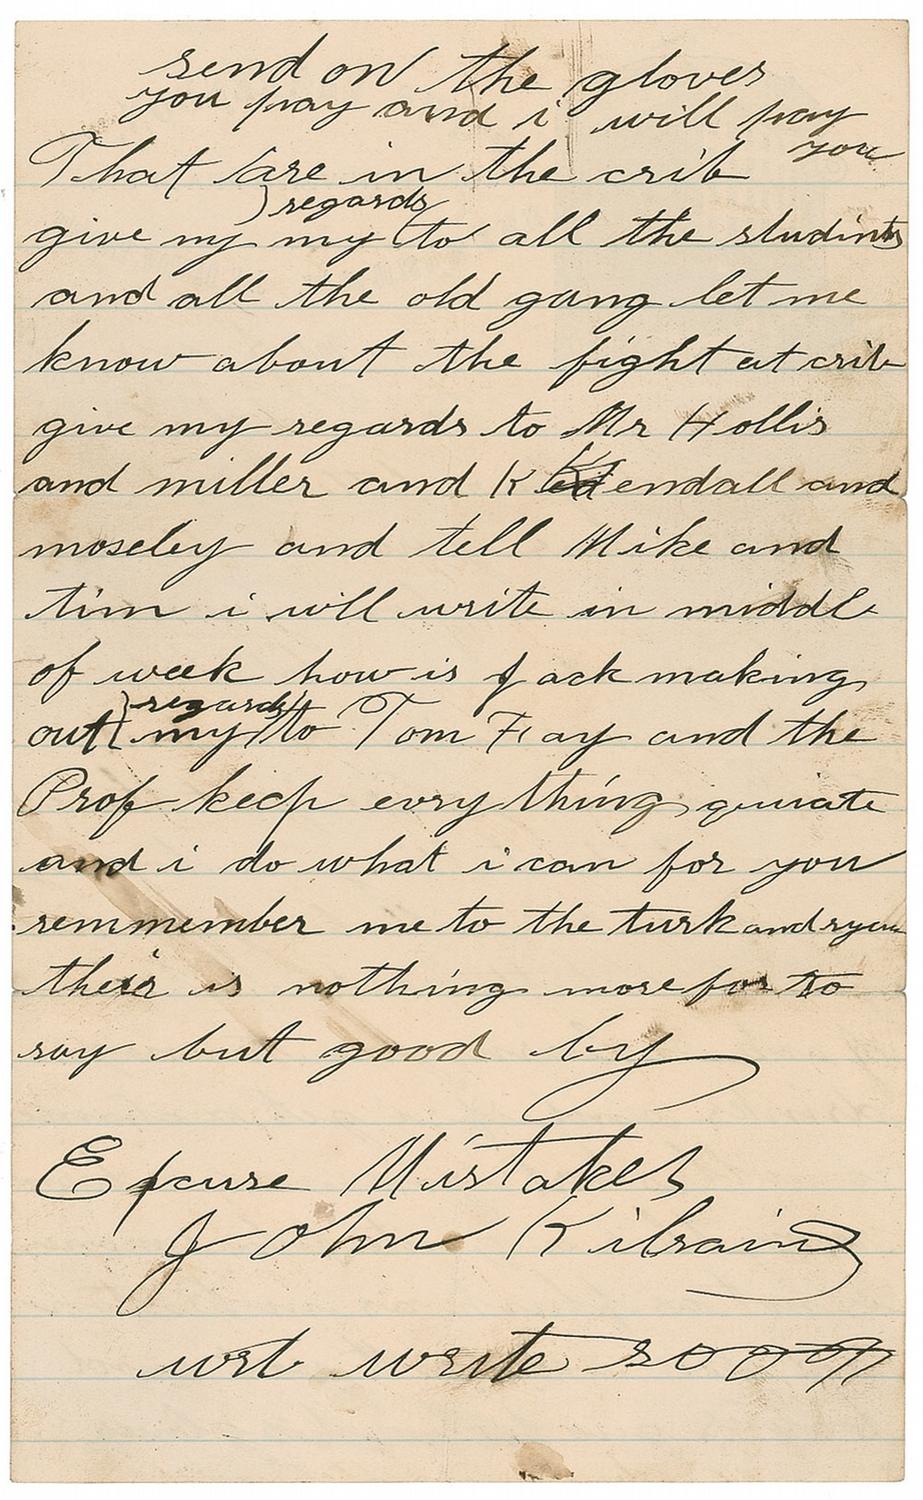 send on the gloves
you pay and i will pay
you
That are in the crib
regards
give my my to all the studints
and all the old gang let me
know about the fight at crib
give my regards to Mr Hollis
and miller and K Kendall and
moseley and tell Mike and
tim i will write in middle
of week how is Jack making
regards
out my to Tom Fray and the
Prof keep evrything quiate
and i do what i can for you
remmember me to the turk and ryan
their is nothing more for to
say but good by
Excuse Mistakes
John Kilrain
wrt write soon